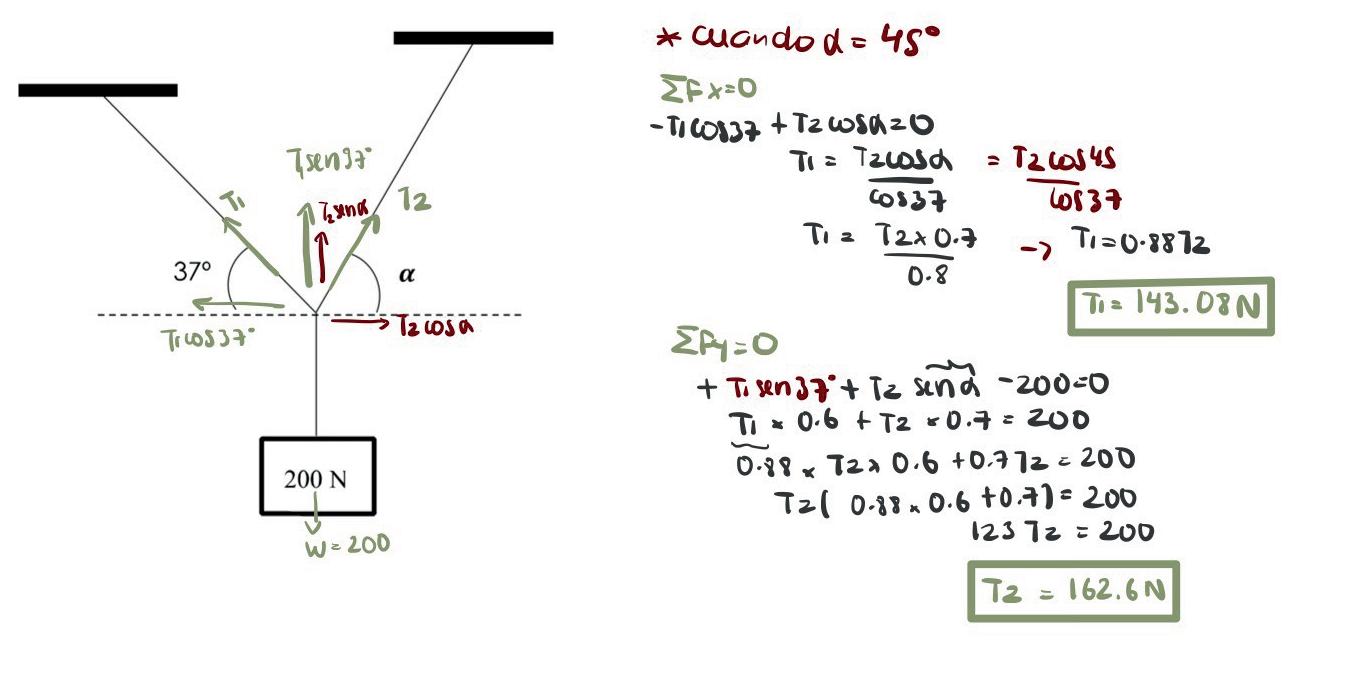 T1sen37°
T1
T2senα
T2
37°
α
T1cos37°
T2cosα
200 N
W=200
* cuando α = 45°
ΣFx=0
-T1cos37 + T2cosα=0
T1 = T2cosα / cos37 = T2cos45 / cos37
T1 = T2×0.7 / 0.8 → T1=0.88T2
T1= 143.08N
ΣFy=0
+ T1sen37° + T2 senα -200=0
T1 × 0.6 + T2 × 0.7 = 200
0.88 × T2× 0.6 +0.7T2 = 200
T2( 0.88 × 0.6 +0.7) = 200
123 T2 = 200
T2 = 162.6N